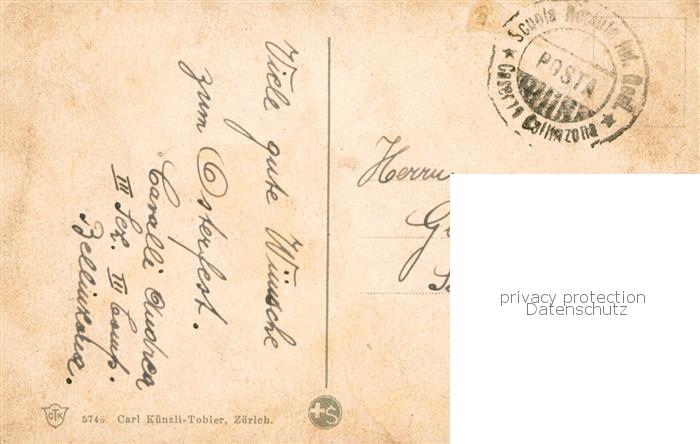 Viele gute Wünsche
zum Osterfest.
Cavalli Andrea
III Sez. III Comp.
Bellinzona.
Scuola Reclute inf. Gott.
POSTA
Caserna Bellinzona
Herrn
G
S
privacy protection
Datenschutz
CTK 5746 Carl Künzli-Tobler, Zürich.
+S